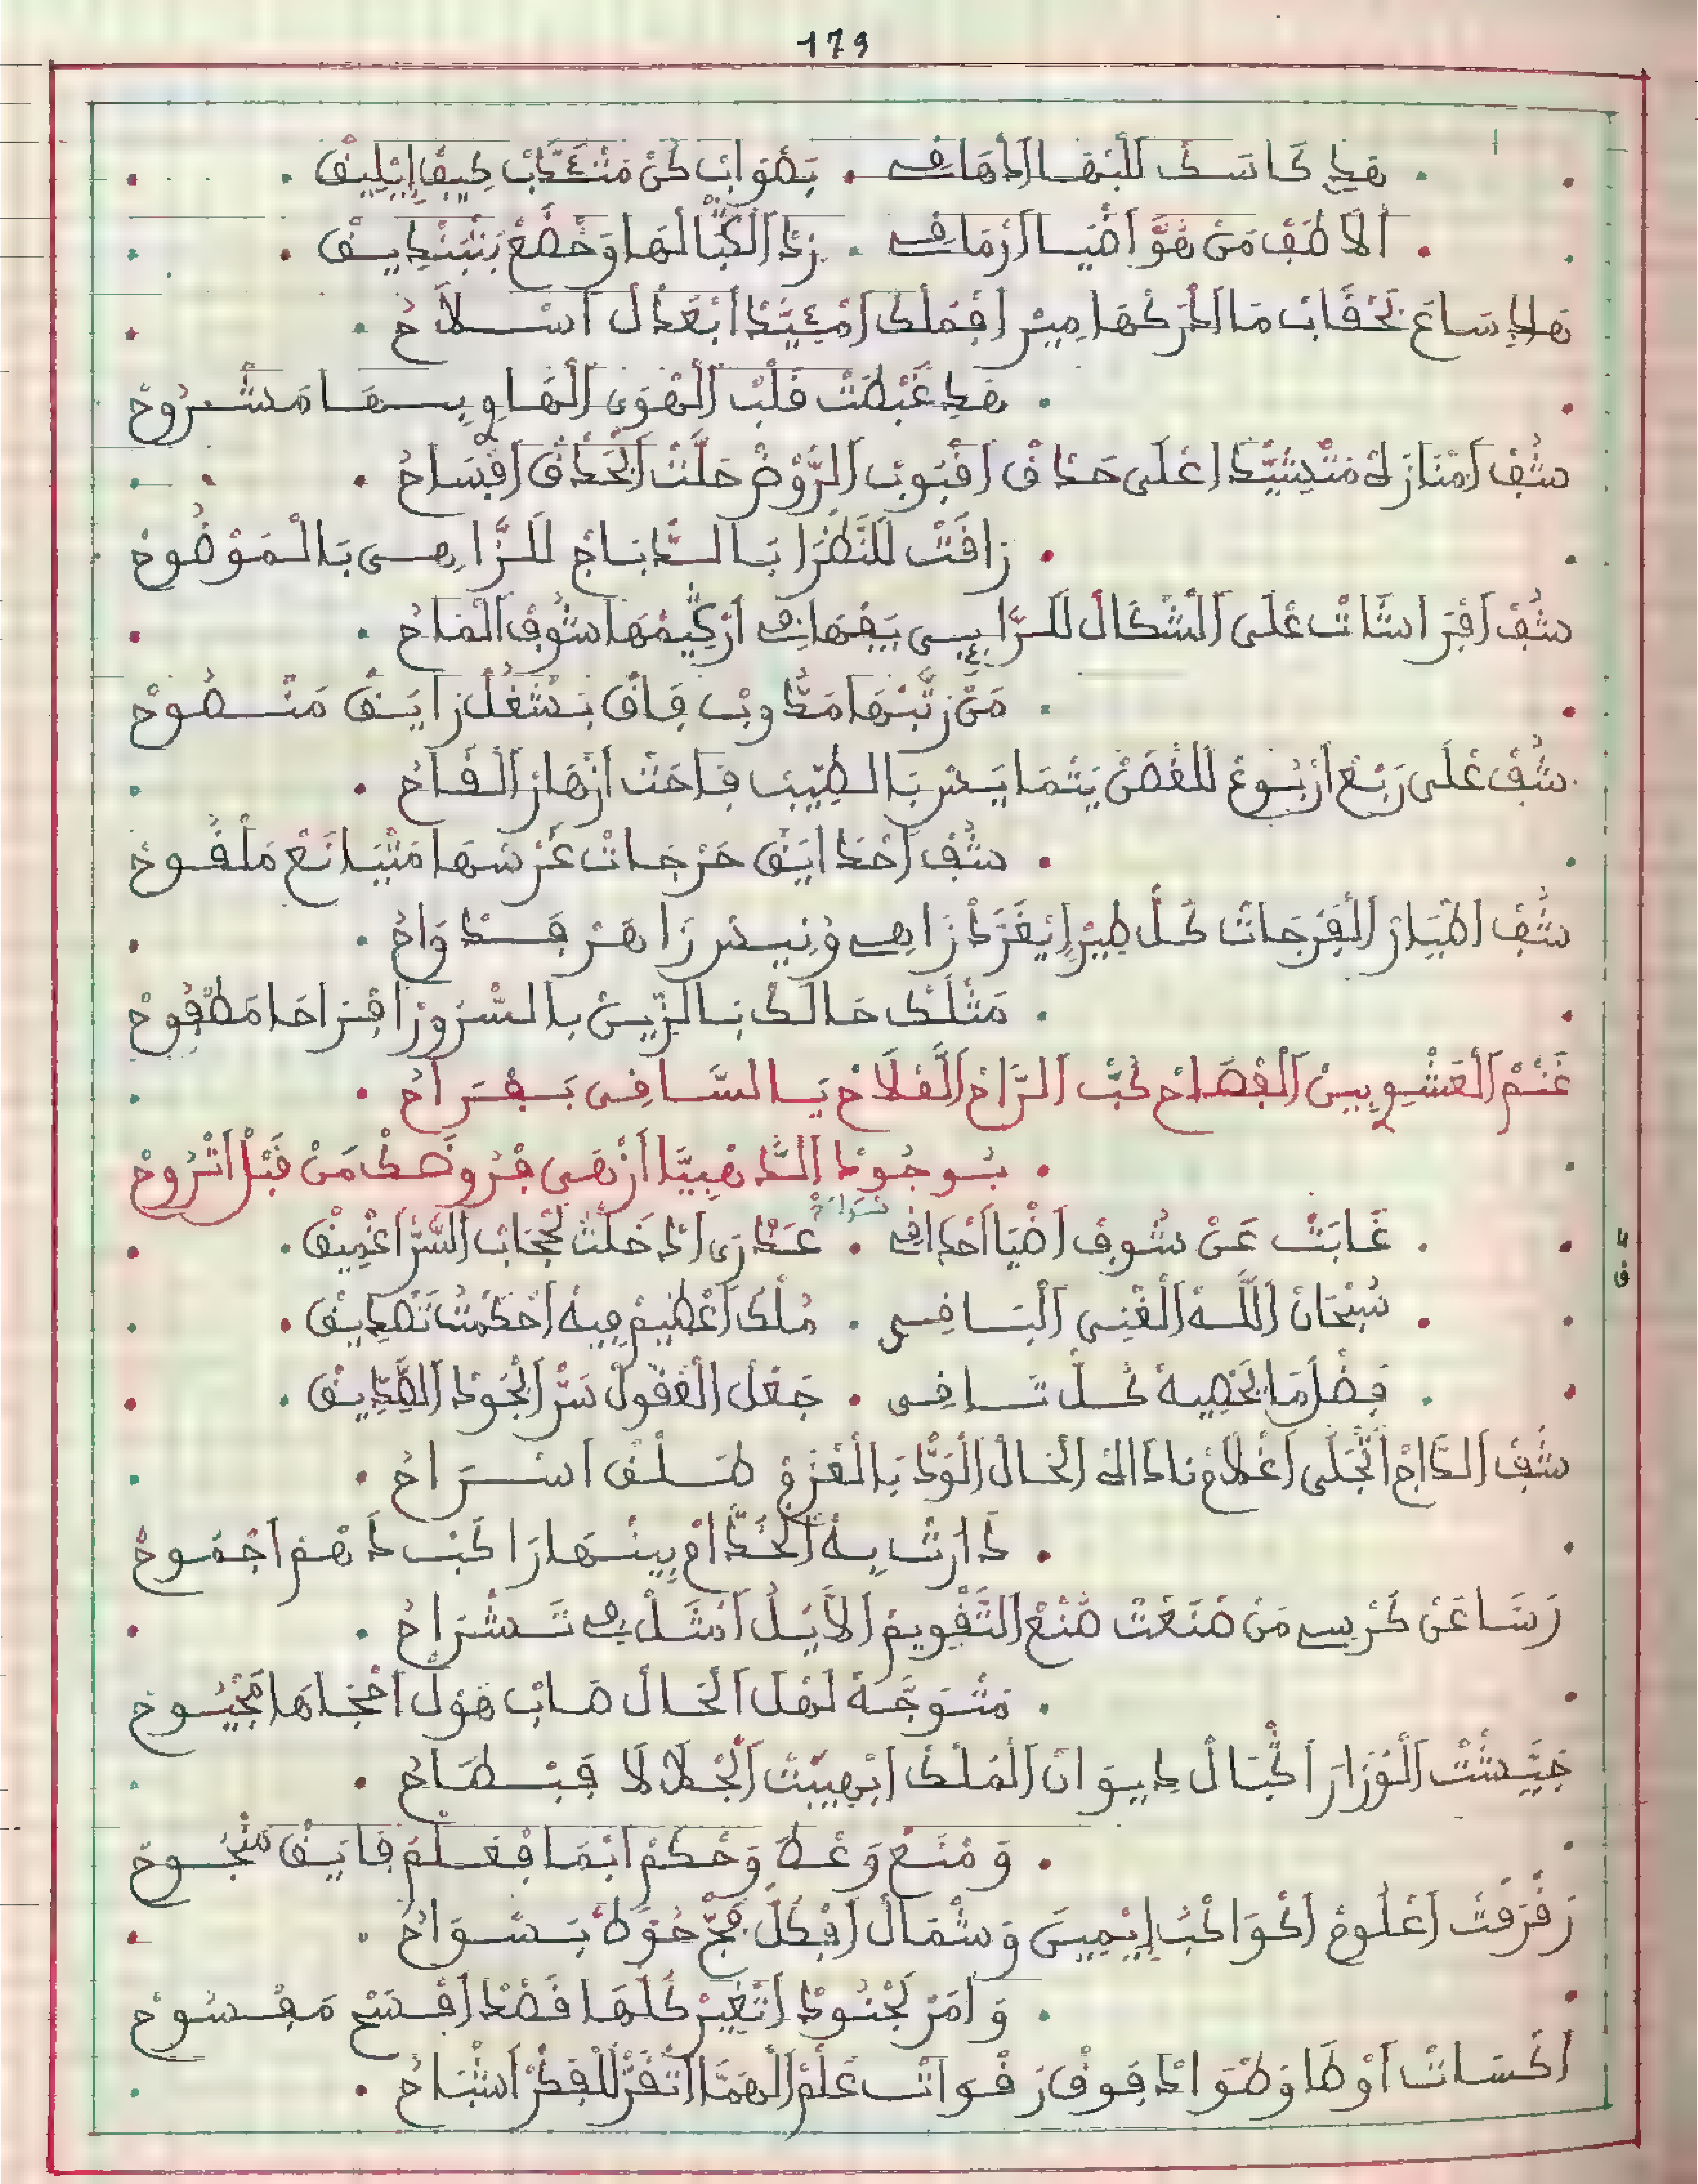 179
هَدِ كَاسَكْ لَلْبَهَا ادْهَاقِي . بَصْوَابْ كُنْ مَتْݣَدَّبْ كِيفْ اِيْلِيقْ
أَلاَطَفْ مَنْ هُوَّ اضْيَا ارْمَاقِي . زِدْ الْكُبَّالْهَا وَخْضَعْ بَنْبَنْدِيقْ
هَادِ سَاعَ تَحْقَابْ مَا ادْرَكْهَا مِيرْ افْمُلْكْ امْݣَيَّدْ ابْعَدْلْ اسْلاَحُ
هَدِ غَبْطَتْ قَلْبْ الْهْوَى الْهَاوِي بِهَا مَشْرُوحْ
شُفْ امْنَازَهْ مَتْشَيَّدَا عْلَى حَدَاقْ اقْبُوبْ الرُّوضْ حَلَّتْ الْحْدَاقْ افْسَاحُ
زَاقَتْ لَلنَّظْرَا بَالدِّبَاجْ لَلزَّاهِي بَالْمَوْضُوحْ
شُفْ افْرَاشَاتْ عْلَى الشْكَالْ لَلرَّايِي بَبْهَاهِي ارْكِيمْهَا شُوفْ الْمَاحُ
مَنْ رَتَّبْهَا مَدُّوبْ فَاقْ بَشْغُلْ رَايَقْ مَنْصُوحْ
شُفْ عْلَى رَبْعْ ارْبُوعْ لَلْغْصَنْ يَتْمَايَسْ بَالطِّيبْ فَاحَتْ ازْهَارْ الْفَاحُ
شُفْ احْدَايَقْ حَرْجَاتْ غَرْسْهَا مَتْيَانَعْ مَلْقُوحْ
شُفْ اطْيَارْ الْفَرْجَاتْ كُلّْ طِيرْ اِيْغَرَّدْ زَاهِي وْنِيسْ زَاهَرْ فَدْوَاحُ
مَثْلَكْ حَالَكْ يَالزِّينْ بِالسْرُورْ افْرَاحَا مَطْفُوحْ
غْنَمْ الْعَشْوِ بِينْ الْفْصَاحْ كُبّْ الرَّاحْ الْفَلاَحْ يَالسَّاقِي بَفْرَاحُ
بُوجُودْ الدَّهْبِيَّا ازْهَى فْرُوضَكْ مَنْ قَبْلْ اتْرُوحْ
غَابَتْ عَنْ شُوفْ اضْيَا احْدَاقِي . عَدْرَى ادْخَلْتْ لَحْجَابْ السَّرّْ اغْمِيقْ
سُبْحَانْ اللَّهْ الْغْنِي الْبَاقِي . مُلْكْ اعْظِيمْ فِيهْ احْكَمْتُ تَصْدِيقْ
فَضْلُ مَا يَحْصِيهْ كُلّْ تَاقِي . جَعْلْ الْعْقُولْ سَرّْ الْجُودْ الصّْدِيقْ
شُفْ الدَّاجْ اتْجَلَّى اعْلاَمْ نَادَالُ الْحَالْ الْوَدّْ بَالْعَزْمْ طَلْقْ اسْرَاحُ
دَارَتْ بِهْ الْخُدَّامْ بِينْهَا رَاكَبْ دَهْمْ اجْمُوحْ
رَسَا عَنْ كُرْسِي مَنْ صَنْعَتْ صُنْعْ التَّقْوِيمْ الاَيْلُ امْثَلْ فِي تَشْرَاحُ
مَتْوَجَّهْ لَهْلْ الْحَالْ صَابْ هُولْ اضْحَاهَا مَجْيُوحْ
جَيَّشَتْ الْوُزَارَ احْبَالْ دِيوَانْ الْمُلْكْ ابْهِيبْتْ الْجْلاَلاَ فَبْطَاحُ
وَمْنَعْ وَعْطَ وَحْكَمْ ابْمَا فْعَلْمُ فَايَقْ مَنْجُوحْ
رَفْرَفْتْ اعْلُومْ اكْوَاكْبُ اِيْمِينْ وَشْمَالْ افْكُلّْ فَجّْ حُوطْ بَسْوَاحُ
وَامَرْ لَجْنُودْ اتْغِيرْ كُلّْهَا قَصْدْ افْسَحْ مَفْسُوحْ
اكْسَاتْ اوْطَا وَطْوَادْ فُوقْ رَقْوَاتْ عَلْمْ الْهَمَّا اتْفَرّْ لَلْفْكَرْ اشْبَاحُ